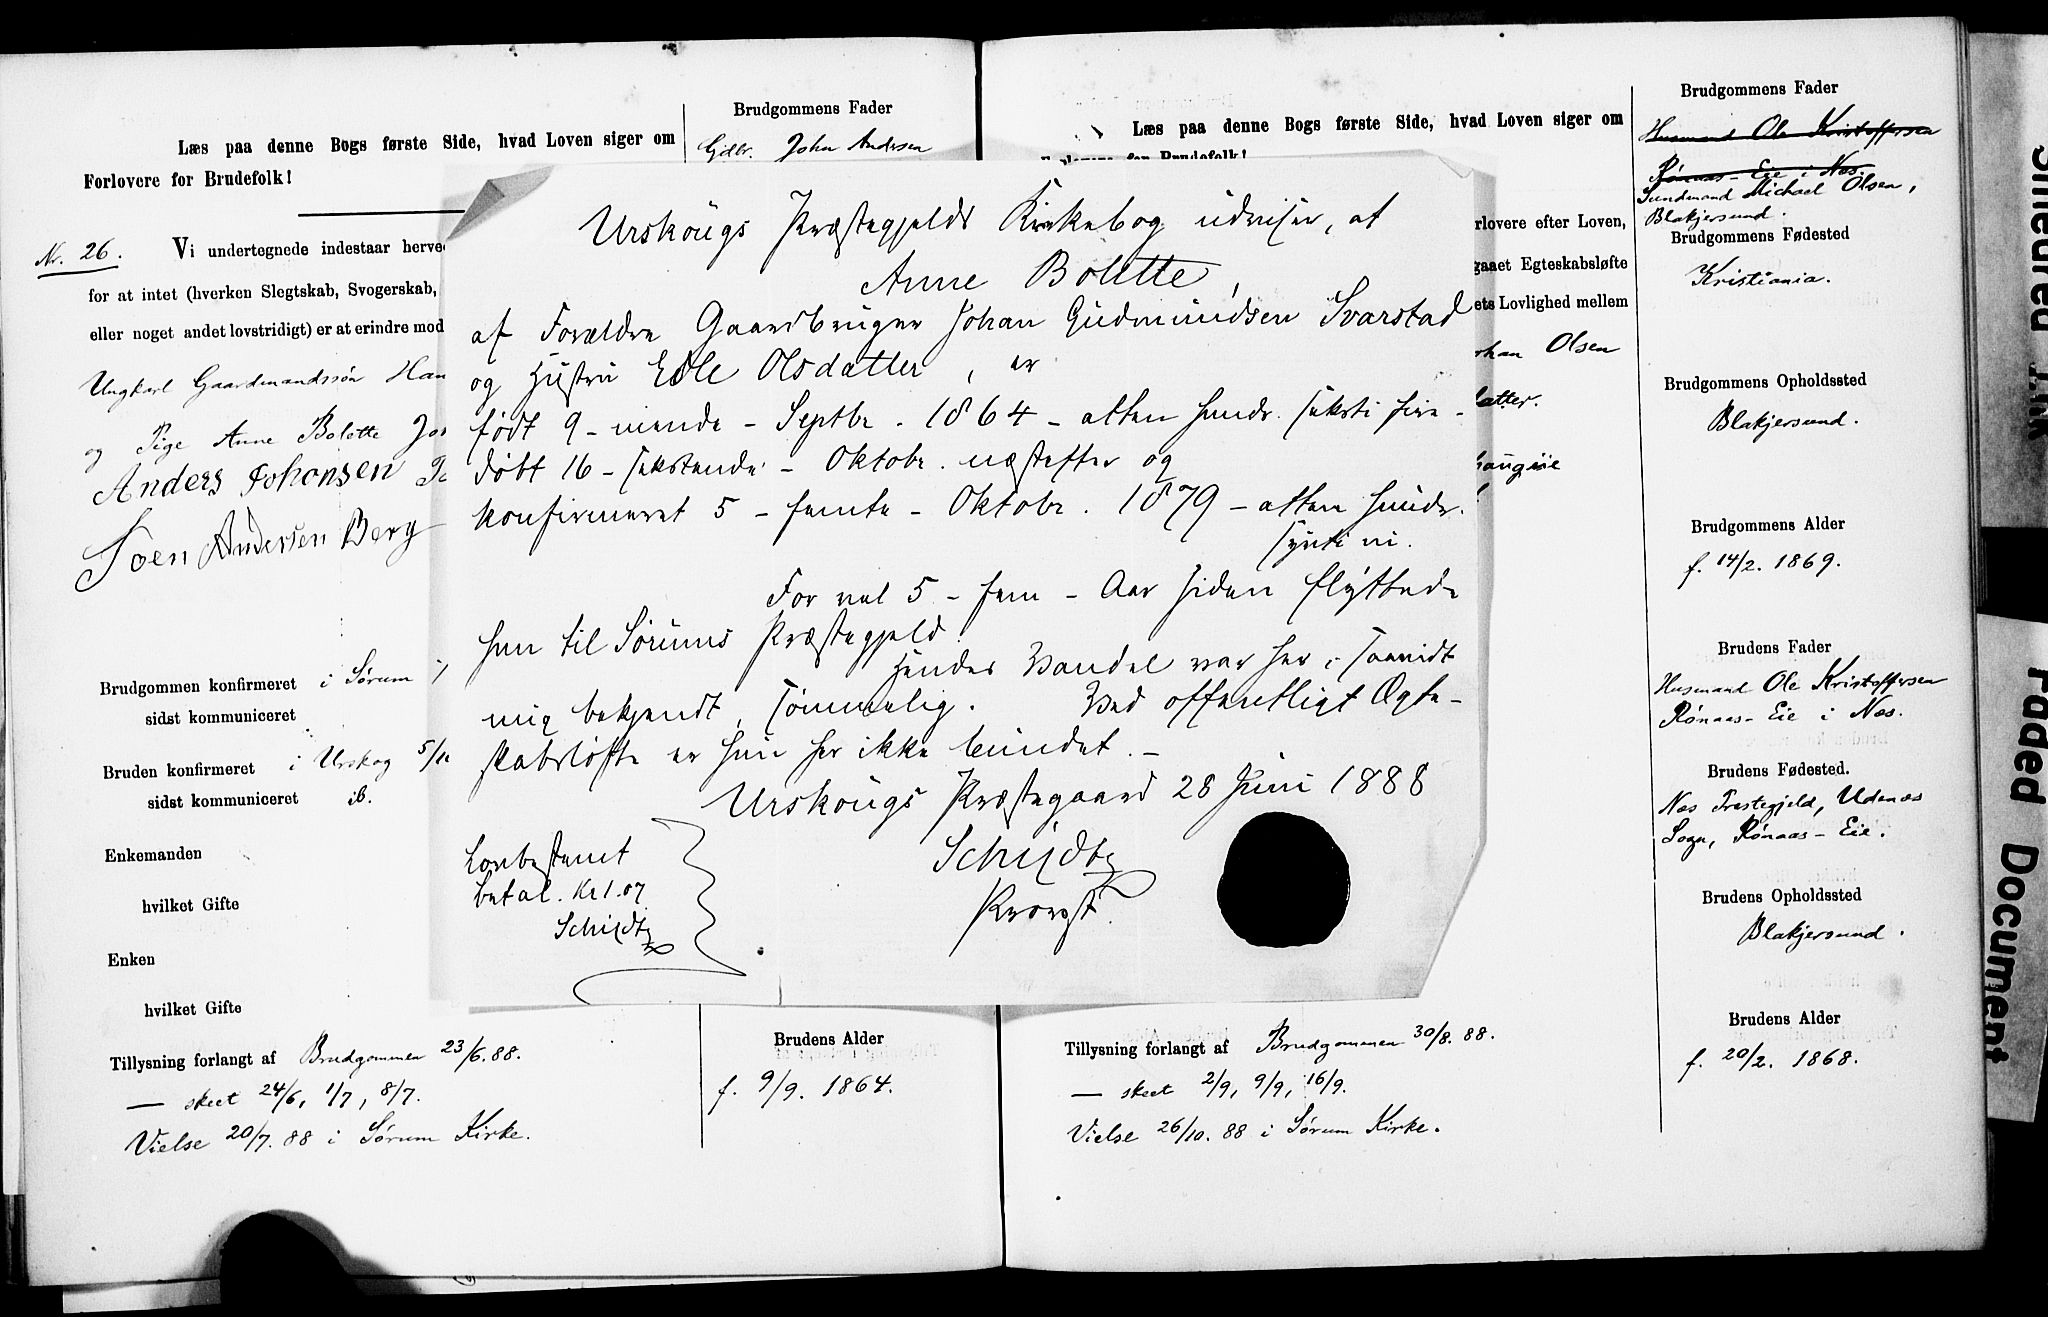 Læs paa denne Bogs første Side, hvad Loven siger om
Forlovere for Brudefolk!
Nr. 26.
Vi undertegnede indestaar herve
for at intet (hverken Slegtskab, Svogerskab,
eller noget andet lovstridigt) er at erindre mod
Ungkarl Gaardmandssøn Han
og Pige Anne Bolette Jo
Anders Johansen
Soen Andersen Berg
Brudgommen konfirmeret i Sørum
sidst kommuniceret
Bruden konfirmeret i Urskog 5/10
sidst kommuniceret ib.
Enkemanden
hvilket Gifte
Enken
hvilket Gifte
Tillysning forlangt af Brudgommen 23/6. 88.
— skeet 24/6, 1/7, 8/7.
Vielse 20/7. 88 i Sørum Kirke.
Brudgommens Fader
Gdbr. John Andersen
Brudens Alder
f. 9/9. 1864.
Urskougs Præstegjelds Kirkebog udviser, at
Anne Bolette,
af Forældre Gaardbruger Johan Gudmundsen Svarstad
og Hustru Edle Olsdatter, er
født 9 - niende - Septbr. 1864 - atten hundr. seksti fire -
døbt 16 - sekstende - Oktobr. næstefter og
konfirmeret 5 - femte - Oktobr. 1879 - atten hundr.
sytti ni.
For vel 5 - fem - Aar siden flyttede
hun til Sørums Præstegjeld.
Hendes Vandel var her, saavidt
mig bekjendt, sømmelig. Ved offentligt Ægte-
skabsløfte er hun her ikke bundet. -
Urskougs Præstegaard 28 Juni 1888
Schijdtz
Provst.
Lovbestemt
betal. Kr 1.07
Schijdtz
Læs paa denne Bogs første Side, hvad Loven siger om
Forlovere for Brudefolk!
rlovere efter Loven,
gaaet Egteskabsløfte
ets Lovlighed mellem
ohan Olsen
datter.
Tillysning forlangt af Brudgommen 30/8. 88.
— skeet 2/9, 9/9, 16/9.
Vielse 26/10. 88 i Sørum Kirke.
Brudgommens Fader
Husmand Ole Kristoffersen
Rønaas-Eie i Næs.
Sundmand Michael Olsen,
Blakjersund.
Brudgommens Fødested
Kristiania.
Brudgommens Opholdssted
Blakjersund.
Brudgommens Alder
f. 14/2. 1869.
Brudens Fader
Husmand Ole Kristoffersen
Rønaas-Eie i Næs.
Brudens Fødested.
Næs Præstegjeld, Udenæs
Sogn, Rønaas-Eie.
Brudens Opholdssted
Blakjersund.
Brudens Alder
f. 20/2. 1868.
Faded Document